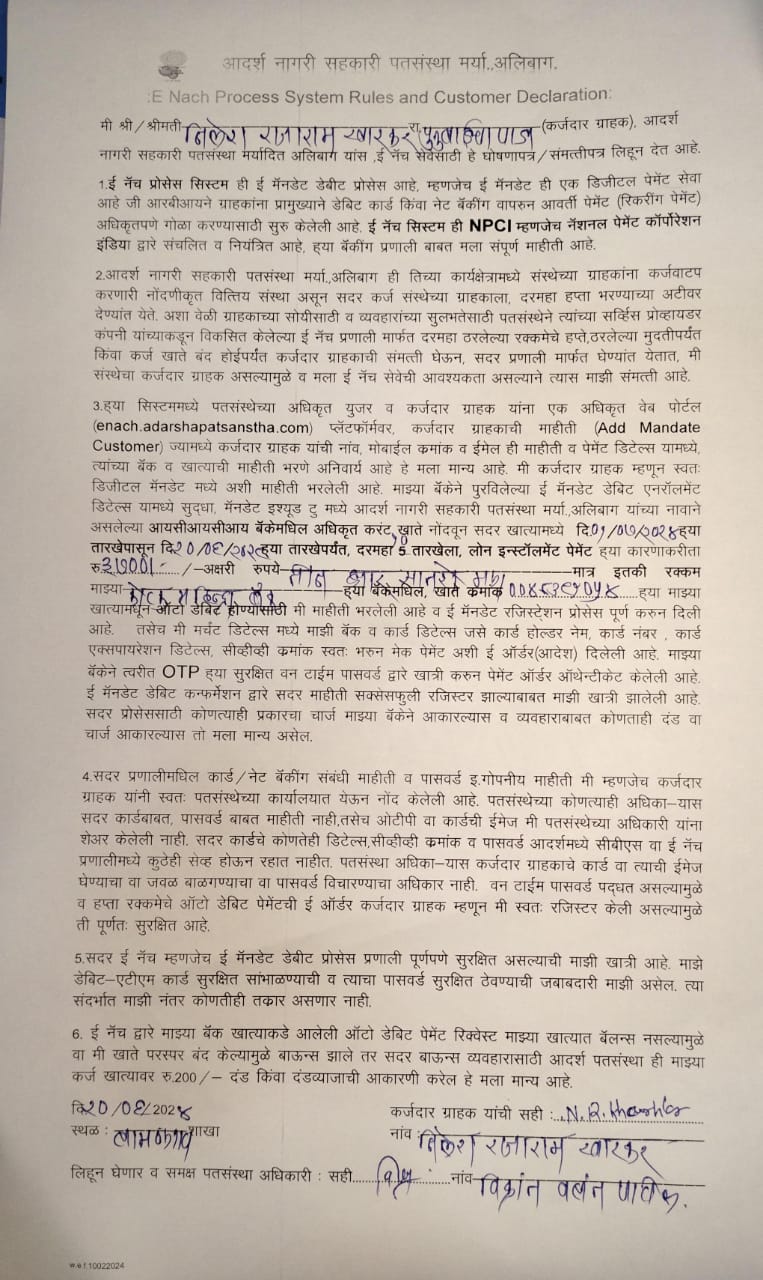 आदर्श नागरी सहकारी पतसंस्था मर्या.,अलिबाग.
:E Nach Process System Rules and Customer Declaration:
मी श्री/श्रीमती निलेश राजाराम खारकर रा. (कर्जदार ग्राहक), आदर्श
नागरी सहकारी पतसंस्था मर्यादित अलिबाग यांस ,ई नॅच सेवेसाठी हे घोषणापत्र/संमत्तीपत्र लिहून देत आहे.
1.ई नॅच प्रोसेस सिस्टिम ही ई मॅनडेट डेबीट प्रोसेस आहे, म्हणजेच ई मॅनडेट ही एक डिजिटल पेमेंट सेवा
आहे जी आरबीआयने ग्राहकांना प्रामुख्याने डेबिट कार्ड किंवा नेट बॅकींग वापरुन आवर्ती पेमेंट (रिकरींग पेमेंट)
अधिकृतपणे गोळा करण्यासाठी सुरु केलेली आहे. ई नॅच सिस्टम ही NPCI म्हणजेच नॅशनल पेमेंट कॉर्पोरेशन
इंडिया द्वारे संचलित व नियंत्रित आहे, ह्या बॅकींग प्रणाली बाबत मला संपूर्ण माहीती आहे.
2.आदर्श नागरी सहकारी पतसंस्था मर्या.,अलिबाग ही तिच्या कार्यक्षेत्रामध्ये संस्थेच्या ग्राहकांना कर्जवाटप
करणारी नोंदणीकृत वित्तिय संस्था असून सदर कर्ज संस्थेच्या ग्राहकाला, दरमहा हप्ता भरण्याच्या अटीवर
देण्यांत येते. अशा वेळी ग्राहकाच्या सोयीसाठी व व्यवहारांच्या सुलभतेसाठी पतसंस्थेने त्यांच्या सर्व्हिस प्रोव्हायडर
कंपनी यांच्याकडून विकसित केलेल्या ई नॅच प्रणाली मार्फत दरमहा ठरलेल्या रक्कमेचे हप्ते,ठरलेल्या मुदतीपर्यंत
किंवा कर्ज खाते बंद होईपर्यंत कर्जदार ग्राहकाची संमत्ती घेऊन, सदर प्रणाली मार्फत घेण्यांत येतात, मी
संस्थेचा कर्जदार ग्राहक असल्यामुळे व मला ई नॅच सेवेची आवश्यकता असल्याने त्यास माझी संमत्ती आहे.
3.ह्या सिस्टममध्ये पतसंस्थेच्या अधिकृत युजर व कर्जदार ग्राहक यांना एक अधिकृत वेब पोर्टल
(enach.adarshapatsanstha.com) प्लॅटफॉर्मवर, कर्जदार ग्राहकाची माहीती (Add Mandate
Customer) ज्यामध्ये कर्जदार ग्राहक यांची नांव, मोबाईल क्रमांक व ईमेल ही माहीती व पेमेंट डिटेल्स यामध्ये,
त्यांच्या बॅक व खात्याची माहीती भरणे अनिवार्य आहे हे मला मान्य आहे. मी कर्जदार ग्राहक म्हणून स्वतः
डिजीटल मॅनडेट मध्ये अशी माहीती भरलेली आहे. माझ्या बॅकेने पुरविलेल्या ई मॅनडेट डेबिट एनरॉलमेंट
डिटेल्स यामध्ये सुद्धा, मॅनडेट इश्यूड टु मध्ये आदर्श नागरी सहकारी पतसंस्था मर्या.,अलिबाग यांच्या नावाने
असलेल्या आयसीआयसीआय बॅकेमधिल अधिकृत करंट खाते नोंदवून सदर खात्यामध्ये दि.01/07/2024ह्या
तारखेपासून दि20/06/202 ह्या तारखेपर्यंत, दरमहा 5 तारखेला, लोन इन्स्टॉलमेंट पेमेंट ह्या कारणाकरीता
रु.3700/-....../-अक्षरी रुपये तीन हजार सातशे मात्र इतकी रक्कम
माझ्या कोटक महिन्द्रा बँक ह्या बॅकेमधिल, खाते क्रमांक ह्या माझ्या
खात्यामधून ऑटो डेबिट होण्यासाठी मी माहीती भरलेली आहे व ई मॅनडेट रजिस्टेशन प्रोसेस पूर्ण करुन दिली
आहे. तसेच मी मर्चंट डिटेल्स मध्ये माझी बॅक व कार्ड डिटेल्स जसे कार्ड होल्डर नेम, कार्ड नंबर , कार्ड
एक्सपायरेशन डिटेल्स, सीव्हीव्ही क्रमांक स्वतः भरुन मेक पेमेंट अशी ई ऑर्डर(आदेश) दिलेली आहे. माझ्या
बॅकेने त्वरीत OTP ह्या सुरक्षित वन टाईम पासवर्ड द्वारे खात्री करुन पेमेंट ऑर्डर ऑथेन्टीकेट केलेली आहे.
ई मॅनडेट डेबिट कन्फर्मेशन द्वारे सदर माहीती सक्सेसफुली रजिस्टर झाल्याबाबत माझी खात्री झालेली आहे.
सदर प्रोसेससाठी कोणत्याही प्रकारचा चार्ज माझ्या बॅकेने आकारल्यास व व्यवहाराबाबत कोणताही दंड वा
चार्ज आकारल्यास तो मला मान्य असेल.
4.सदर प्रणालीमधिल कार्ड/नेट बॅकींग संबंधी माहीती व पासवर्ड इ.गोपनीय माहीती मी म्हणजेच कर्जदार
ग्राहक यांनी स्वतः पतसंस्थेच्या कार्यालयात येऊन नोंद केलेली आहे. पतसंस्थेच्या कोणत्याही अधिका-यास
सदर कार्डबाबत, पासवर्ड बाबत माहीती नाही,तसेच ओटीपी वा कार्डची ईमेज मी पतसंस्थेच्या अधिकारी यांना
शेअर केलेली नाही. सदर कार्डचे कोणतेही डिटेल्स,सीव्हीव्ही क्रमांक व पासवर्ड आदर्शमध्ये सीबीएस वा ई नॅच
प्रणालीमध्ये कुठेही सेव्ह होऊन रहात नाहीत. पतसंस्था अधिका-यास कर्जदार ग्राहकाचे कार्ड वा त्याची ईमेज
घेण्याचा वा जवळ बाळगण्याचा वा पासवर्ड विचारण्याचा अधिकार नाही. वन टाईम पासवर्ड पद्धत असल्यामुळे
व हप्ता रक्कमेचे ऑटो डेबिट पेमेंटची ई ऑर्डर कर्जदार ग्राहक म्हणून मी स्वतः रजिस्टर केली असल्यामुळे
ती पूर्णतः सुरक्षित आहे.
5.सदर ई नॅच म्हणजेच ई मॅनडेट डेबीट प्रोसेस प्रणाली पूर्णपणे सुरक्षित असल्याची माझी खात्री आहे. माझे
डेबिट-एटीएम कार्ड सुरक्षित सांभाळण्याची व त्याचा पासवर्ड सुरक्षित ठेवण्याची जबाबदारी माझी असेल. त्या
संदर्भात माझी नंतर कोणतीही तक्रार असणार नाही.
6. ई नॅच द्वारे माझ्या बॅक खात्याकडे आलेली ऑटो डेबिट पेमेंट रिक्वेस्ट माझ्या खात्यात बॅलन्स नसल्यामुळे
वा मी खाते परस्पर बंद केल्यामुळे बाऊन्स झाले तर सदर बाऊन्स व्यवहारासाठी आदर्श पतसंस्था ही माझ्या
कर्ज खात्यावर रु.200/- दंड किंवा दंडव्याजाची आकारणी करेल हे मला मान्य आहे.
दि20/06/2024 कर्जदार ग्राहक यांची सही :. N.R.Kharkar
स्थळ : शाखा नांव : निलेश राजाराम खारकर
लिहून घेणार व समक्ष पतसंस्था अधिकारी : सही नांव विक्रांत वसंत पाटील.
w.e.f.10022024